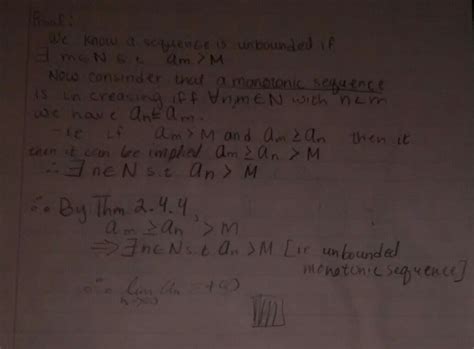 Proof:
We know a sequence is unbounded if
∃ m∈N s.t. am > M
Now consinder that a monotonic sequence
is increasing iff ∀n,m∈N with n<m
we have an≤am.
- So if am > M and am ≥ an then it
then it can be implied am ≥ an > M
∴ ∃ n∈N s.t. an > M
∴ By Thm 2.4.4,
am ≥ an > M
⇒ ∃ n∈N s.t. an > M [ie unbounded
monotonic sequence]
∴ lim an = +∞
n→∞